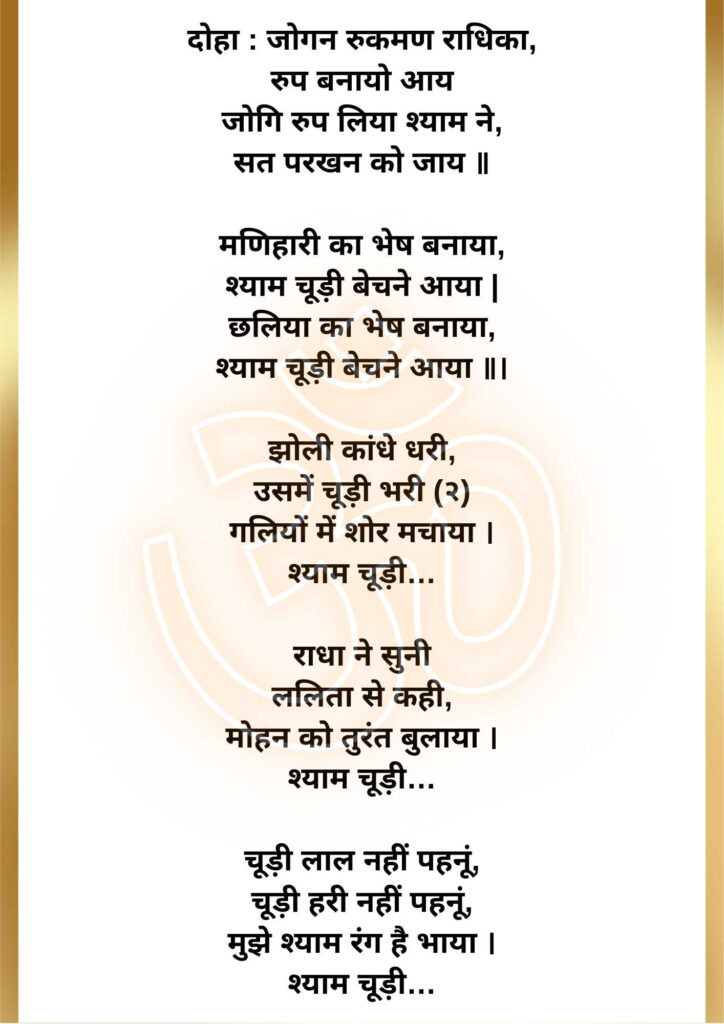 दोहा : जोगन रुकमण राधिका,
रुप बनायो आय
जोगि रुप लिया श्याम ने,
सत परखन को जाय ॥
मणिहारी का भेष बनाया,
श्याम चूड़ी बेचने आया |
छलिया का भेष बनाया,
श्याम चूड़ी बेचने आया ॥।
झोली कांधे धरी,
उसमें चूड़ी भरी (२)
गलियों में शोर मचाया ।
श्याम चूड़ी…
राधा ने सुनी
ललिता से कही,
मोहन को तुरंत बुलाया ।
श्याम चूड़ी…
चूड़ी लाल नहीं पहनूं,
चूड़ी हरी नहीं पहनूं,
मुझे श्याम रंग है भाया ।
श्याम चूड़ी…